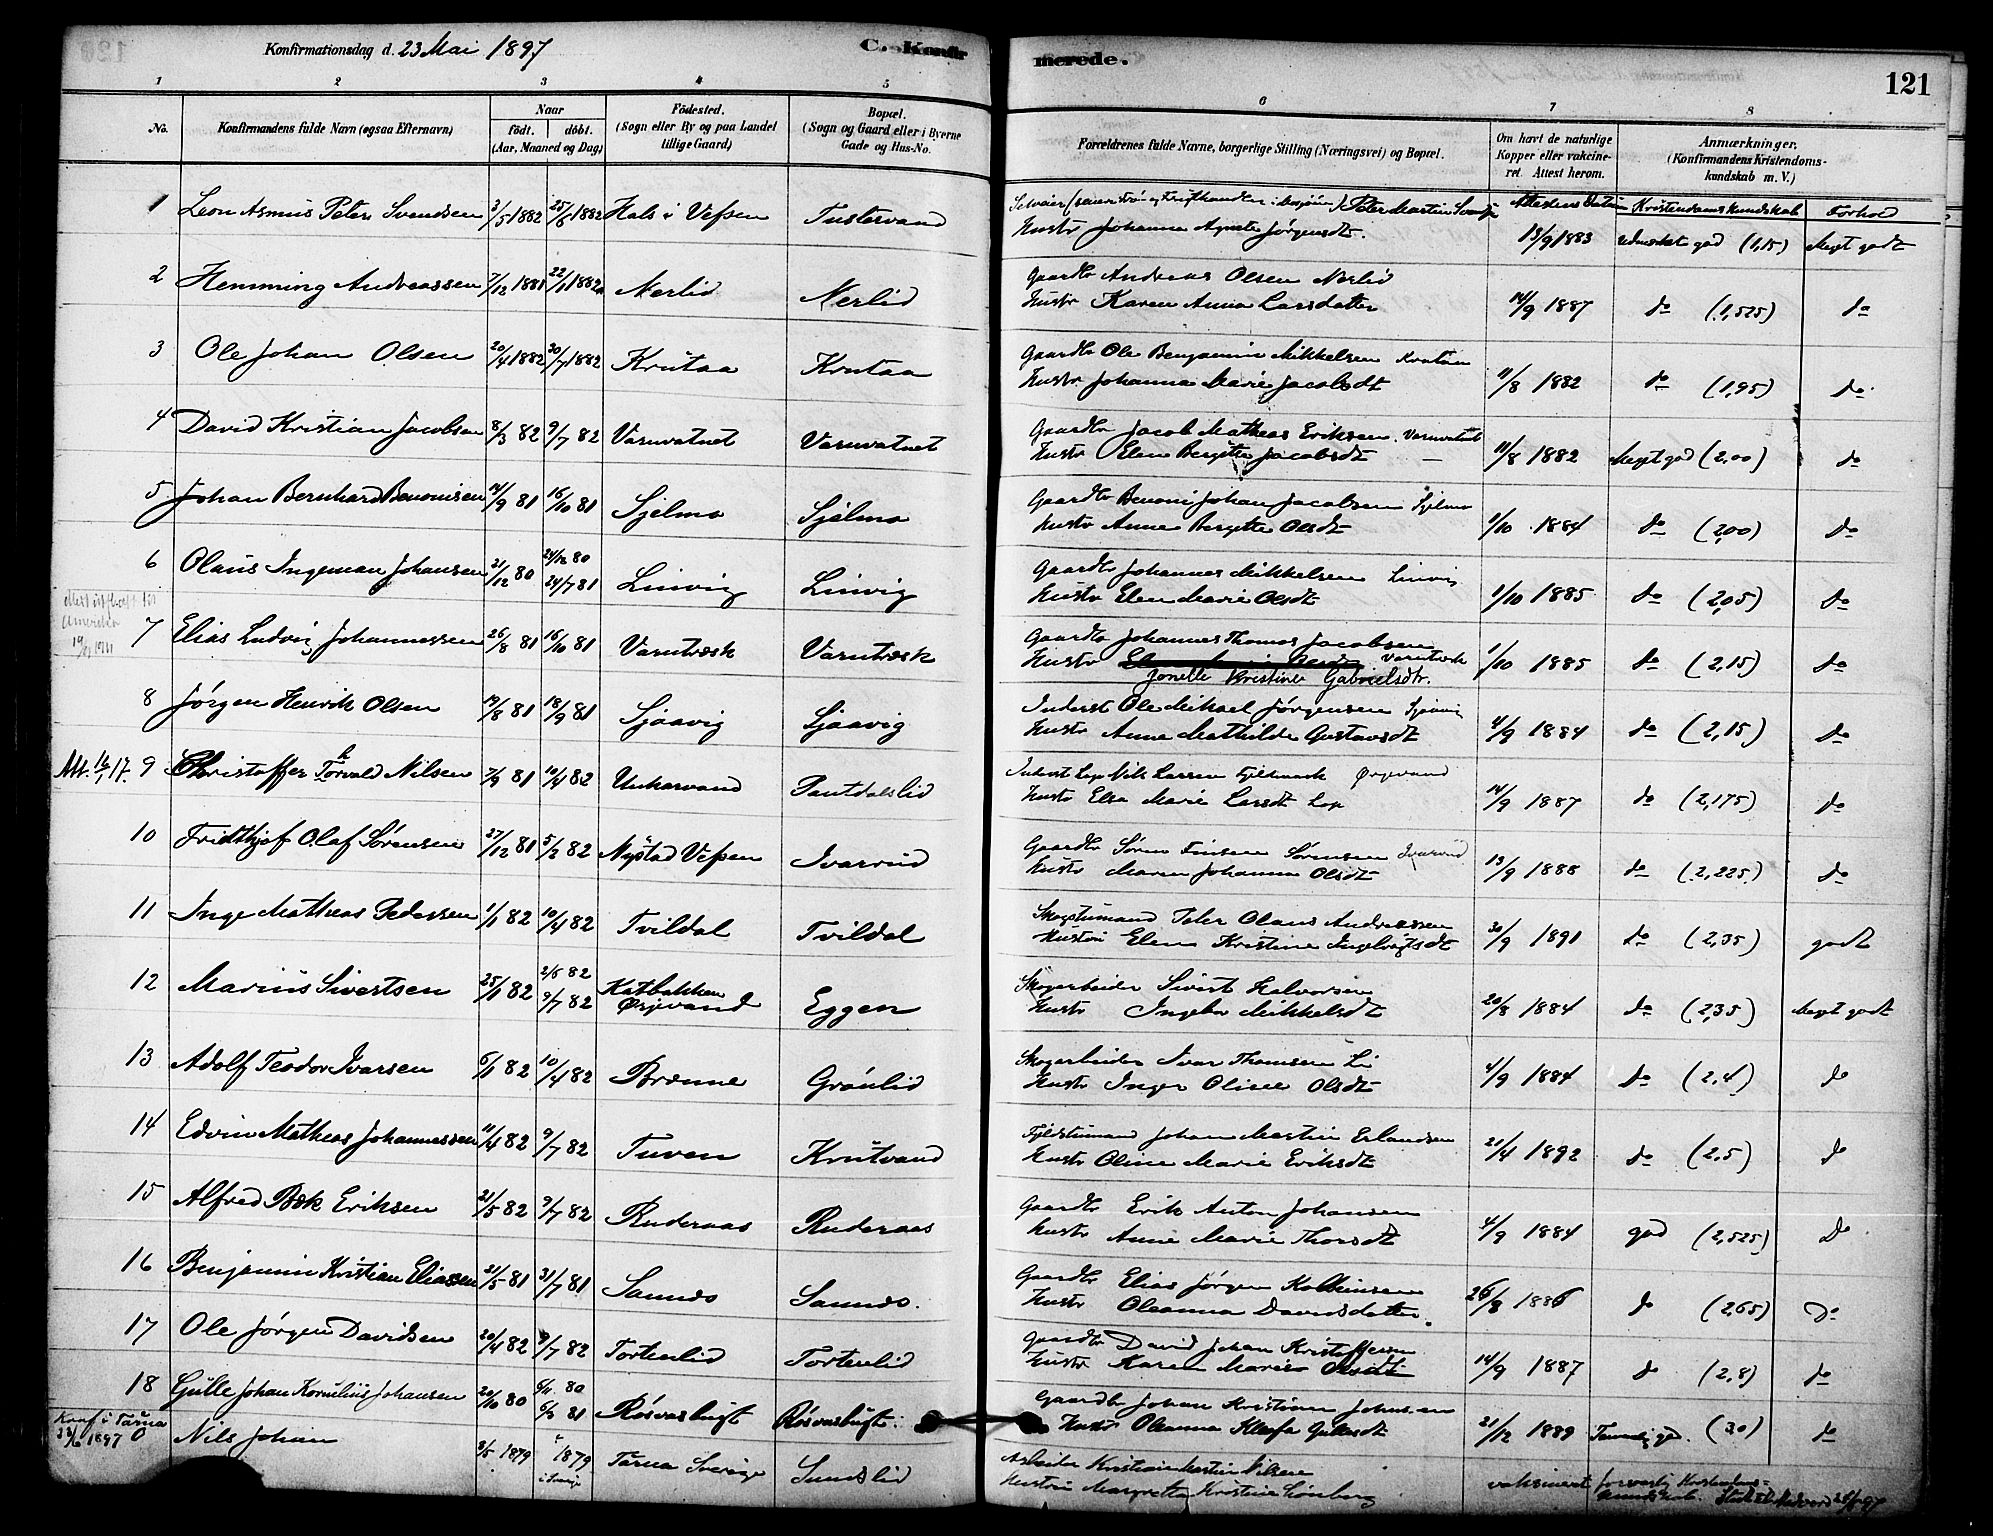 Konfirmationsdag d. 23 Mai 1897
C. Konfir
merede.
121
1 2 3 4 5
6 7 8
No.
Konfirmandens fulde Navn (ogsaa Efternavn)
Naar
födt. döbt.
(Aar, Maaned og Dag)
Födested.
(Sogn eller By og paa Landet
tillige Gaard)
Bopæl.
(Sogn og Gaard eller i Byerne
Gade og Hus-No.
Forældrenes fulde Navne, borgerlige Stilling (Næringsvei) og Bopæl.
Om havt de naturlige
Kopper eller vakcine-
ret. Attest herom.
Anmærkninger.
(Konfirmandens Kristendoms-
kundskab m. V.)
Attestens Datum Kristendomskundskab Forhold
1 Leon Asmus Peter Svendsen 3/5 1882 25/6 1882 Hals i Vefsen Tustervand
Peter Martin
Hustr Johanna Agnete Jørgensdt. 13/9 1883 god (1,15) Meget godt
2 Hemming Andreassen 7/12 1881 22/1 1882 Nerlid Nerlid
Gaardbr Andreas Olsen Nerlid
Hustr Karen Anna Larsdatter 14/9 1887 do (1,525) do
3 Ole Johan Olsen 20/4 1882 30/7 1882 Krutaa Krutaa
Gaardbr Ole Benjamin Mikkelsen Krutaa
Hustr Johanna Marie Jacobsdt 11/8 1882 do (1,95) do
4 David Kristian Jacobsen 8/3 82 9/7 82 Varnvatnet Varnvatnet
Gaardbr Jacob Mathias Eriksen Varnvatnet
Hustr Elen Bergitte Jacobsdt — 11/8 1882 Meget god (2,00) do
5 Johan Bernhard Benonisen 14/9 81 16/10 81 Sjelmo Sjelmo
Gaardbr Benoni Johan Jacobsen Sjelmo
Hustr Anne Bergitte Olsdt 1/10 1884 do (2,00) do
6 Olaus Ingeman Johansen 21/12 80 24/12 80
24/7 81 Linvig Linvig
Gaardbr Johannes Mikkelsen Linvig
Hustr Elen Marie Olsdt 1/10 1885 do (2,05) do
Amerika
7 Elias Ludvig Johannessen 26/8 81 16/10 81 Varntresk Varntresk
Gaardbr Johannes Thomas Jacobsen
Hustr Varntresk 1/10 1885 do (2,15) do
Jonette Kristine Gabrielsdtr.
8 Jørgen Henrik Olsen 19/8 81 18/9 81 Sjaavig Sjaavig
Inderst Ole Mikael Jørgensen Sjaavig
Hustr Anna Mathilde Gustavsdt 4/9 1884 do (2,15) do
Att. 16/1 17. 9 Christoffer Torvald Nilsen 7/9 81 10/4 82 Unkervand Pantdalslid
Inderst Lap Nils Larsen Fjeldmark Ørjevand
Hustr Elsa Marie Larsdt Lap 14/9 1887 do (2,175) do
10 Fridthjof Olaf Sørensen 27/12 81 5/2 82 Nystad Vefsen Ivarrud
Gaardbr Søren Finsen Sørensen Ivarrud
Hustr Maren Johanna Olsdt 13/9 1888 do (2,225) do
11 Inge Mathias Pedersen 1/1 82 10/4 82 Tvildal Tvildal
Skogstumand Peter Olaus Andreassen
Hustru Elen Kristine Ingebrigtsdt 30/9 1891 do (2,35) godt
12 Marius Sivertsen 25/1 82 2/5 82
9/7 82 Katbakken
Ørjevand Eggen
Skogarbeider Sivert Halvorsen
Hustr Ingebor Mikkelsdt 20/8 1884 do (2,35) Meget godt
13 Adolf Teodor Ivarsen 6/1 82 10/4 82 Brænne Grønlid
Skogarbeider Ivar Thomsen Li
Hustr Inger Oline Olsdt 4/9 1884 do (2,4) do
14 Edvin Mathias Johannessen 11/4 82 9/7 82 Tuven Krutvand
Fjeldstumand Johan Martin Erlandsen
Hustr Oline Marie Eriksdt 21/4 1892 do (2,5) do
15 Alfred Bæk Eriksen 21/5 82 9/7 82 Ruderaas Ruderaas
Gaardbr Erik Anton Johansen
Hustr Anne Marie Thorsdt 4/9 1884 god (2,525) Do
16 Benjamin Kristian Eliassen 21/5 81 31/7 81 Sannes Sannes.
Gaardbr Elias Jørgen Kolbeinsen
Hustr Oleanna Davidsdatter. 26/8 1886 do (2,65) Do
17 Ole Jørgen Davidsen 20/4 82 9/7 82 Tortenlid Tortenlid
Gaardbr David Johan Kristoffersen
Hustr Karen Marie Olsdt 14/9 1887 do (2,8) do
18 Gulle Johan Kornelius Johansen 20/10 80 6/11 80
6/3 81 Røsvasbugt Røsvasbugt.
Gaardbr Johan Kristian Johnsen
Hustr Oleanna Kleofa Gullesdt 21/12 1889 (3,0) do
Konf i Tärna
23/6 1897 0 Nils Johan 3/5 1879 1879
i Sverige Tärna Sverige Sundslid
Arbeider Kristian Martin Nilsen
Hustru Margretha Kristine Lønberg vaksineret